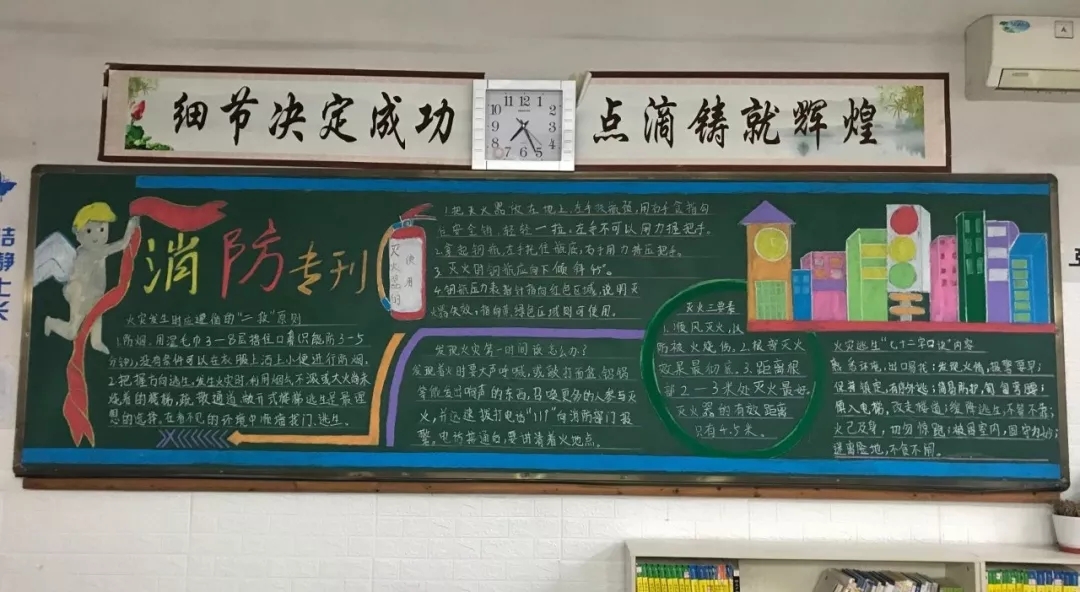 细节决定成功
点滴铸就辉煌
11 12 1
10 2
9 3
8 4
7 6 5
消防专刊
火灾发生时应遵循的"二救"原则
1.防烟,用湿毛巾3-8层捂住口鼻只能防3-5
分钟,没有条件可以在衣服上洒上小便进行防烟。
2.把握方向逃生,发生火灾时,利用烟么不浓或大火尚未
烧着的楼梯,疏散通道,敞开式楼梯逃生是最理
想的选择。
灭火器的
使用
1.把灭火器放在地上,左手
安全销,轻轻一拉,左手不可以用力握把手。
2.拿起钢瓶,左手托住瓶底,右手用力挤压把手。
3.灭火时钢瓶应向下倾斜45°。
4.钢瓶压力表指针指向红色区域,说明灭
火器失效,指向黄绿色区域则可使用。
发现火灾第一时间该怎么办?
发现着火时要大声呼喊,或敲打面盆、铝锅
等能发出响声的东西,召唤更多的人参与灭
火,并迅速拨打电话"119"向消防部门报
警,电话接通后,要讲清着火地点。
灭火三要素
1.顺风灭火,以
防被火烧伤。2.接密灭火
效果最彻底。3.距离根
部2-3米处灭火最好。
灭火器的有效距离
只有4.5米。
火灾逃生"七十二字口诀"内容
熟悉环境,出口易找;发现火情,报警要早;
保持镇定,有序外逃;简易防护,匍匐弯腰;
慎入电梯,改走楼道;缓降逃生,不等不靠;
火已及身,切勿惊跑;被困室内,固守为妙;
远离险地,不贪不闹。